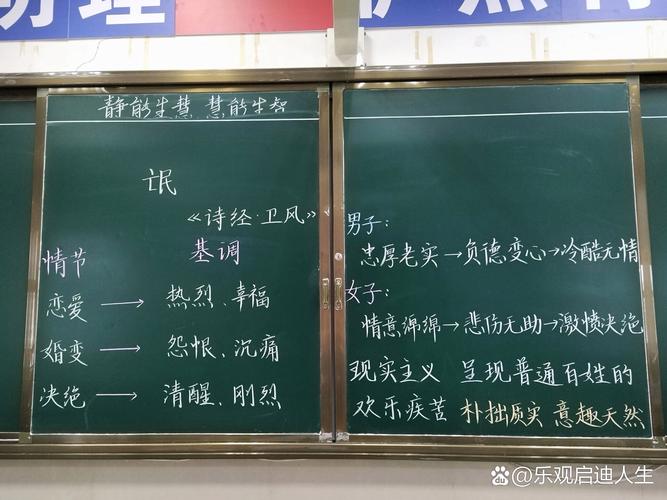 静能生慧 慧能生智
氓
《诗经·卫风》
情节 基调
恋爱 → 热烈、幸福
婚变 → 怨恨、沉痛
决绝 → 清醒、刚烈
男子:
忠厚老实→负德变心→冷酷无情
女子:
情意绵绵→悲伤无助→激愤决绝
现实主义 呈现普通百姓的
欢乐疾苦 朴拙质实 意趣天然
@乐观启迪人生